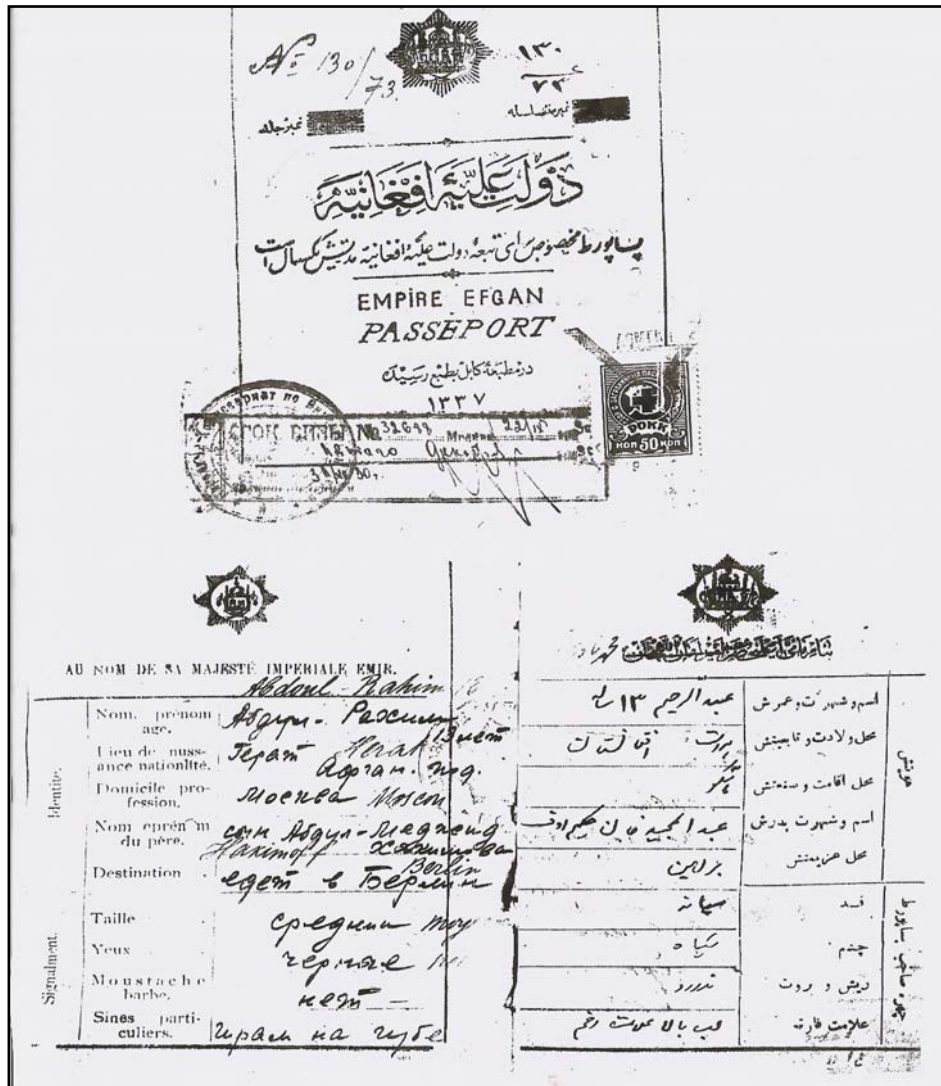 № 130/73.
١٣٠
٧٣
نمبر جلد
نمبر سلسله
دَولَتِ عَلِيَّۀ اَفغَانِيَّه
پساپورط مخصوص برای تبعۀ دولت علیّۀ افغانیّه مدتش یکسال است
EMPİRE EFGAN
PASSEPORT
درمطبعۀ کابل بطبع رسید
١٣٣٧
СРОК № 32698
30 г.
КОП 50 КОП
AU NOM DE SA MAJESTÉ IMPERIALE EMIR.
Abdoul-Rahim
Identite.
Nom. prénom age.
Абдул-Рахим
13 лет
Lieu de nussance nationlité.
Герат Herat
Афган. под.
Domicile profession.
Москва Moscou
Nom eprénom du père.
сын Абдул-Меджид
Hakimoff Хакимова
Destination
едет в Берлин
Berlin
Signalment.
Taille
средний moy
Yeux
черные
Moustache barbe.
нет
Sines particuliers.
шрам на губе
هویتش
اسم و شهرت و عمرش
عبدالرحیم ١٣ ساله
محل ولادت و تابعیتش
هرات افغانستان
محل اقامت و صنعتش
ماسکو
اسم و شهرت پدرش
عبدالمجید خان حکیم اوف
محل عزیمتش
برلین
چهره صاحب پساپورط
قد
میانه
چشم
سیاه
ریش و بروت
ندارد
علامت فارقه
لب بالا علامت زخم